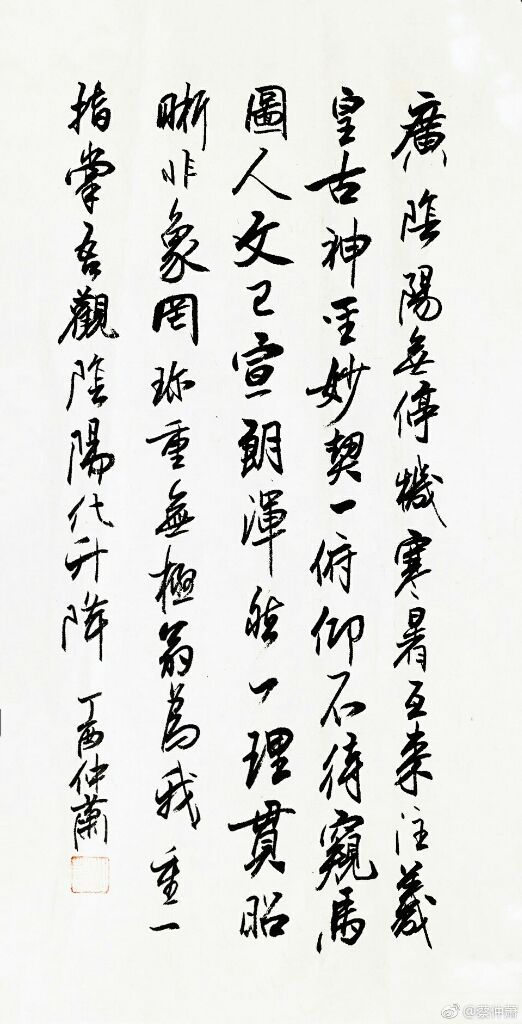 廣陰陽無停機寒暑互来往羲
皇古神聖妙契一俯仰不待窺馬
圖人文已宣朗渾然一理貫昭
晰非象罔珍重無極翁為我重一
指掌吾觀陰陽化升降 丁酉仲蕭
@蔡仲萧